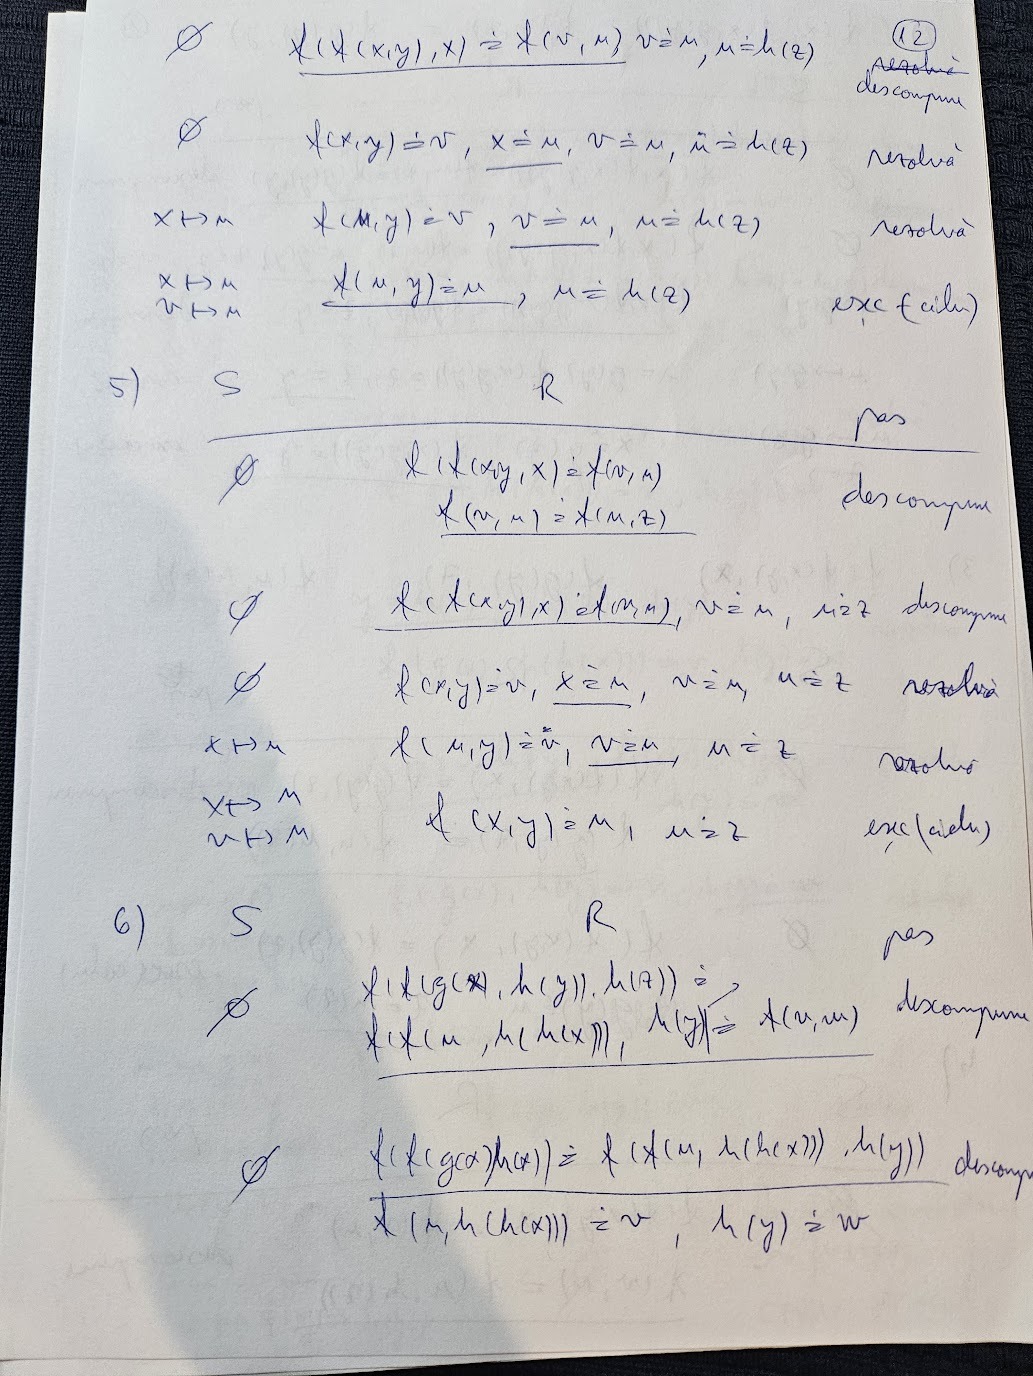 12
∅ f(f(x,y),x) ≐ f(v,u) v≐u, u≐h(z) rezolvă
descompune
∅ f(x,y)≐v, x≐u, v≐u, u≐h(z) rezolvă
x↦u f(u,y)≐v, v≐u, u≐h(z) rezolvă
x↦u
v↦u f(u,y)≐u, u≐h(z) eșec (ciclu)
5) S R
pas
∅ f(f(x,y,x)≐f(v,u) descompune
f(v,u)≐f(u,z)
∅ f(f(x,y),x)≐f(v,u), v≐u, u≐z descompune
∅ f(x,y)≐v, x≐u, v≐u, u≐z rezolvă
x↦u f(u,y)≐v, v≐u, u≐z rezolvă
x↦u
v↦u f(x,y)≐u, u≐z eșec (ciclu)
6) S R
pas
∅ f(f(g(x), h(y)), h(z)) ≐ descompune
f(f(u, h(h(x))), h(y) ≐ f(v,w)
∅ f(f(g(x)h(x)) ≐ f(f(u, h(h(x))), h(y)) descompu
f(u,h(h(x))) ≐ v, h(y) ≐ w